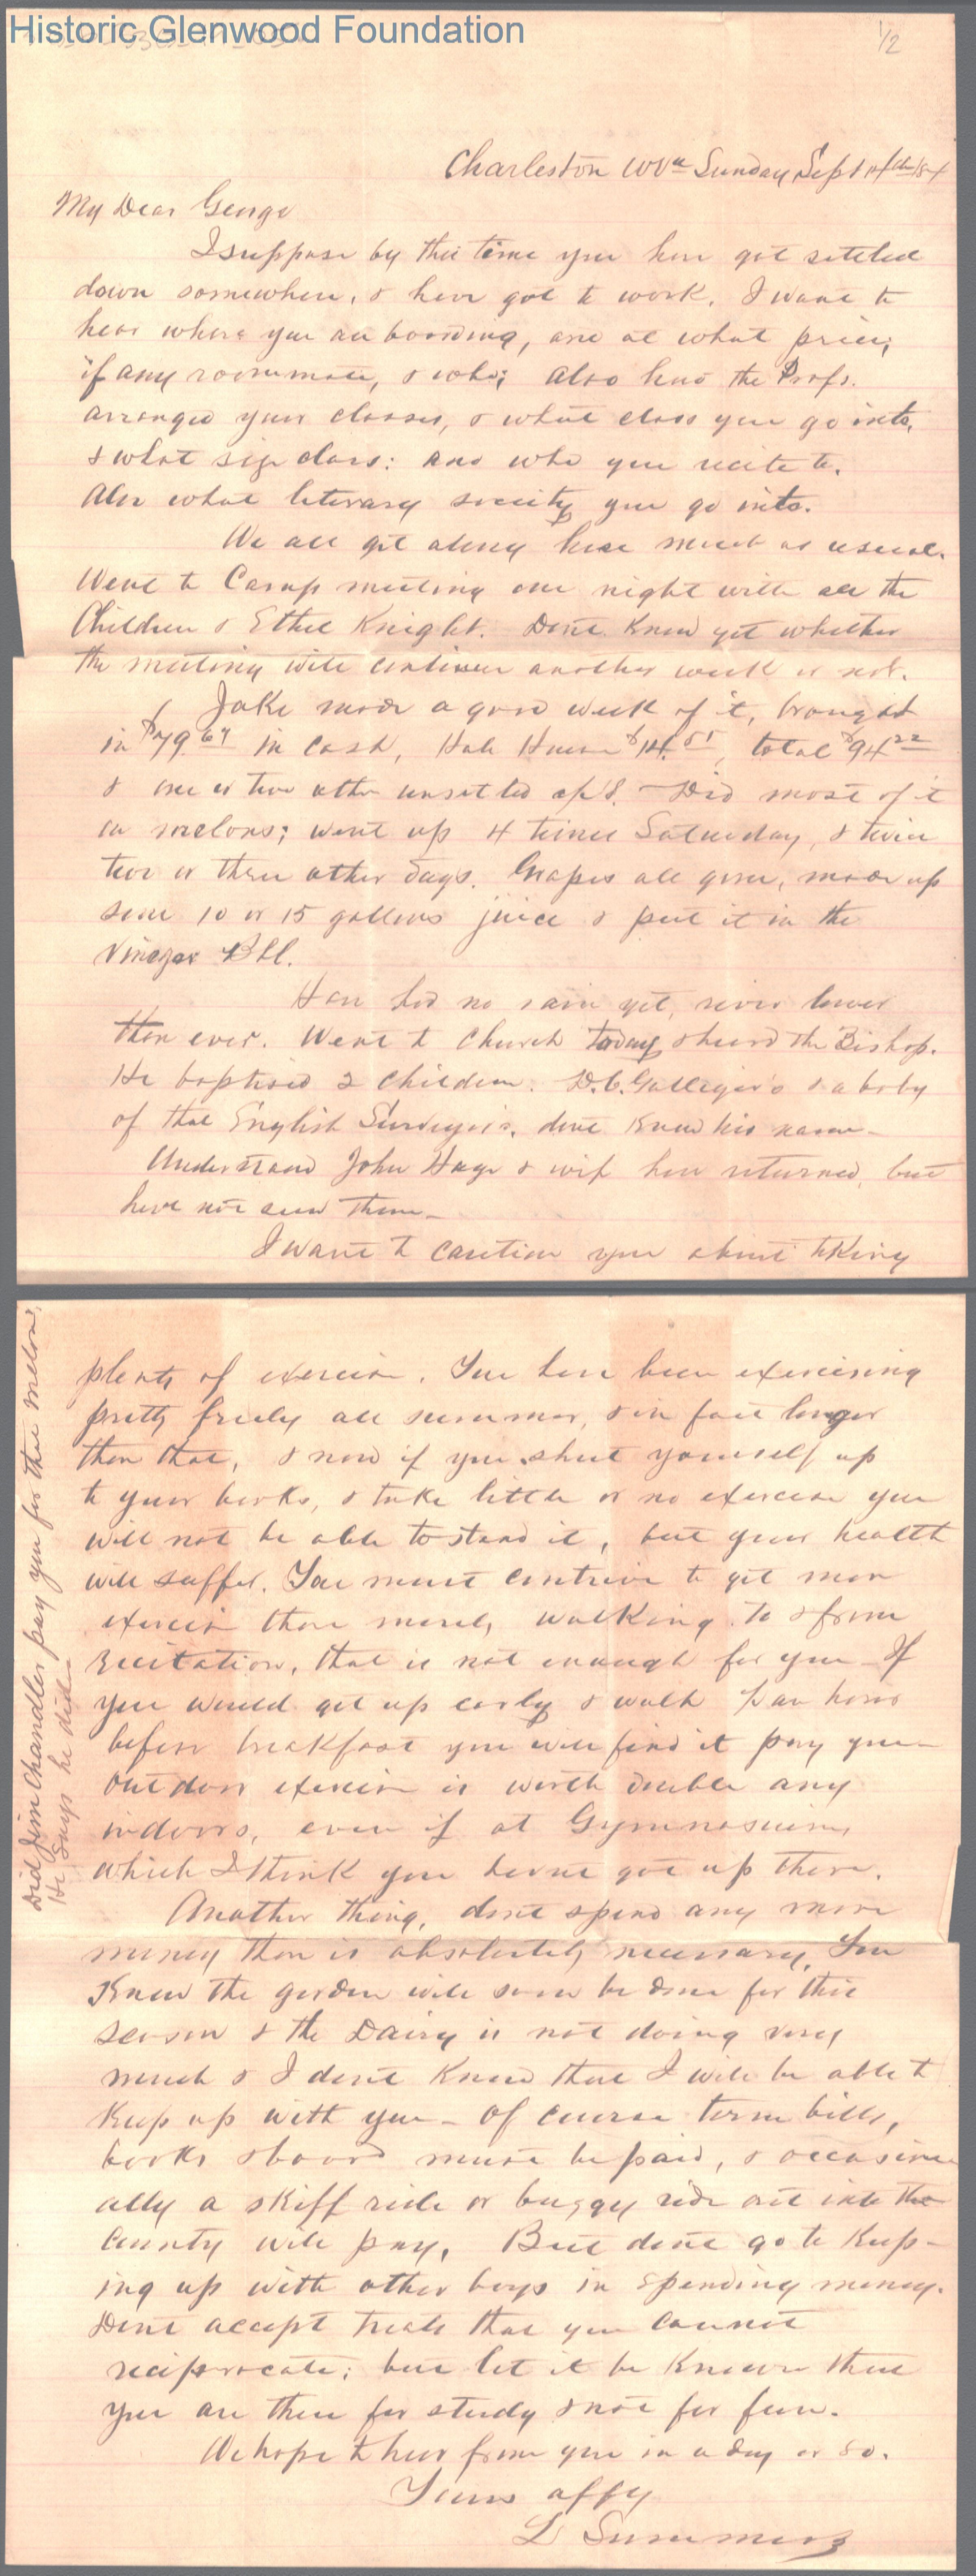 Historic Glenwood Foundation
1/2
Charleston WVa Sunday Sept 14th /84
My Dear George
I suppose by this time you have got settled
down somewhere, & have got to work. I want to
hear where you are boarding, and at what price,
if any roommate, & who; also how the Profs.
arranged your classes, & what class you go into,
& what size class: and who you recite to.
Also what literary society you go into.
We all get along here much as usual.
Went to Camp meeting one night with all the
Children & Ethel Knight. Dont know yet whether
the meeting will continue another week or not.
Jake made a good week of it, brought
in $79 67 in cash, Hale House $14. 55, total $94 22
& one or two other unsettled
in melons; went up 4 times Saturday, & twice
two or three other days. Grapes all gone, made up
some 10 or 15 gallons juice & put it in the
Vinegar Bbl.
Have had no rain yet, river lower
than ever. Went to Church today & heard the Bishop.
He baptised 2 children. D.C. Gallaher's & a baby
of that English Surveyor's, dont know his name -
Understand John Hays & wife have returned, but
have not seen them -
I want to caution you about taking
plenty of exercise. You have been exercising
pretty freely all summer, & in fact longer
than that, & now if you shut yourself up
to your books, & take little or no exercise you
will not be able to stand it, but your health
will suffer. You must contrive to get more
exercise than merely walking to & from
recitation, that is not enough for you - If
you would get up early & walk ½ an hour
before breakfast you will find it pay you -
Out door exercise is worth double any
indoors, even if at Gymnasium,
which I think you havent got up there.
Another thing, dont spend any more
money than is absolutely necessary. You
Know the garden will soon be done for this
season & the Dairy is not doing very
much & I dont Know that I will be able to
Keep up with you - Of course term bills,
books & board must be paid, & occasion
ally a skiff ride or buggy ride out into the
County will pay, But dont go to Keep-
ing up with other boys in spending money.
Dont accept treats that you cannot
reciprocate; but let it be Known that
you are there for study & not for fun.
We hope to hear from you in a day or so.
Yours affy
L Summers
Did Jim Chandler pay you for that melon,
He says he did -